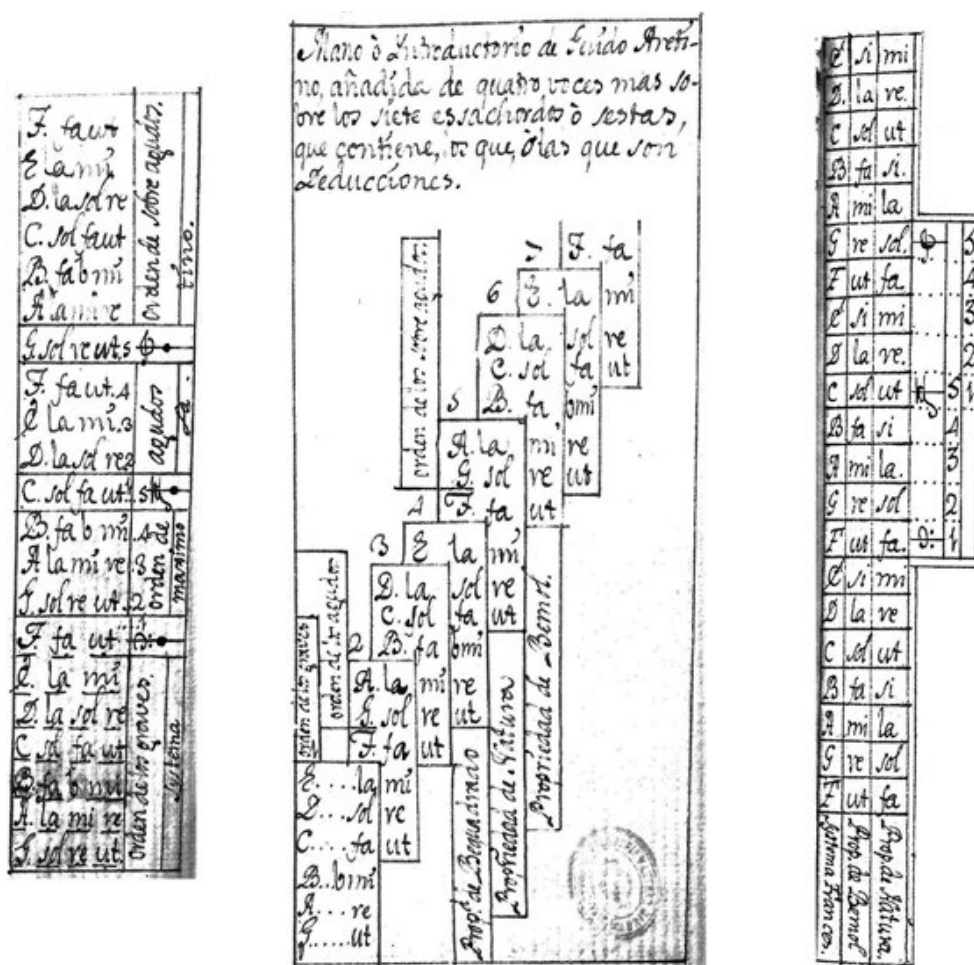 F. faut
E la mi
D. la sol re
C. sol faut
B. fa b mi
A la mi re
orden de sobre agudos.
G. sol re ut. 5
F. fa ut. 4
E la mi. 3
D. la sol re 2
agudos
C. sol fa ut
B. fa b mi 4
A la mi re 3
G. sol re ut. 2
orden de
maximo
F. fa ut
E. la mi
D. la sol re
C sol fa ut
B. fa b mi
A. la mi re
G. sol re ut.
orden de los graves.
sistema
Mano ò Introductorio de Guido Areti-
no, añadida de quatro voces mas so-
bre los siete essachordos ò sestas,
que contiene,
que son
Deducciones.
7 F. fa
6 E. la mi
D. la sol re
C. sol fa ut
5 B. fa b mi
A. la mi re
G. sol re ut
4 F. fa ut
3 E la mi
D. la sol re
C. sol fa ut
2 B. fa b mi
A. la mi re
G. sol re ut
F. fa ut
E.... la mi
D... sol re
C.... fa ut
B.. b mi
A.... re
G...... ut
orden de los sobre agudos.
orden de los agudos
orden de los graves
Prop.d de Bequadrado
Propriedad de Natura
Propriedad de Bemol.
E si mi
D. la re.
C sol ut
B fa si.
A mi la
G re sol. 5
F ut fa. 4
E si mi 3
D la re. 2
C sol ut 5 1
B fa si 4
A mi la. 3
G re sol 2
F ut fa. 1
E si mi
D la re
C sol ut
B fa si
A mi la
G re sol
F ut fa
Sistema Frances.
Prop. de Bemol
Prop. de Natura.